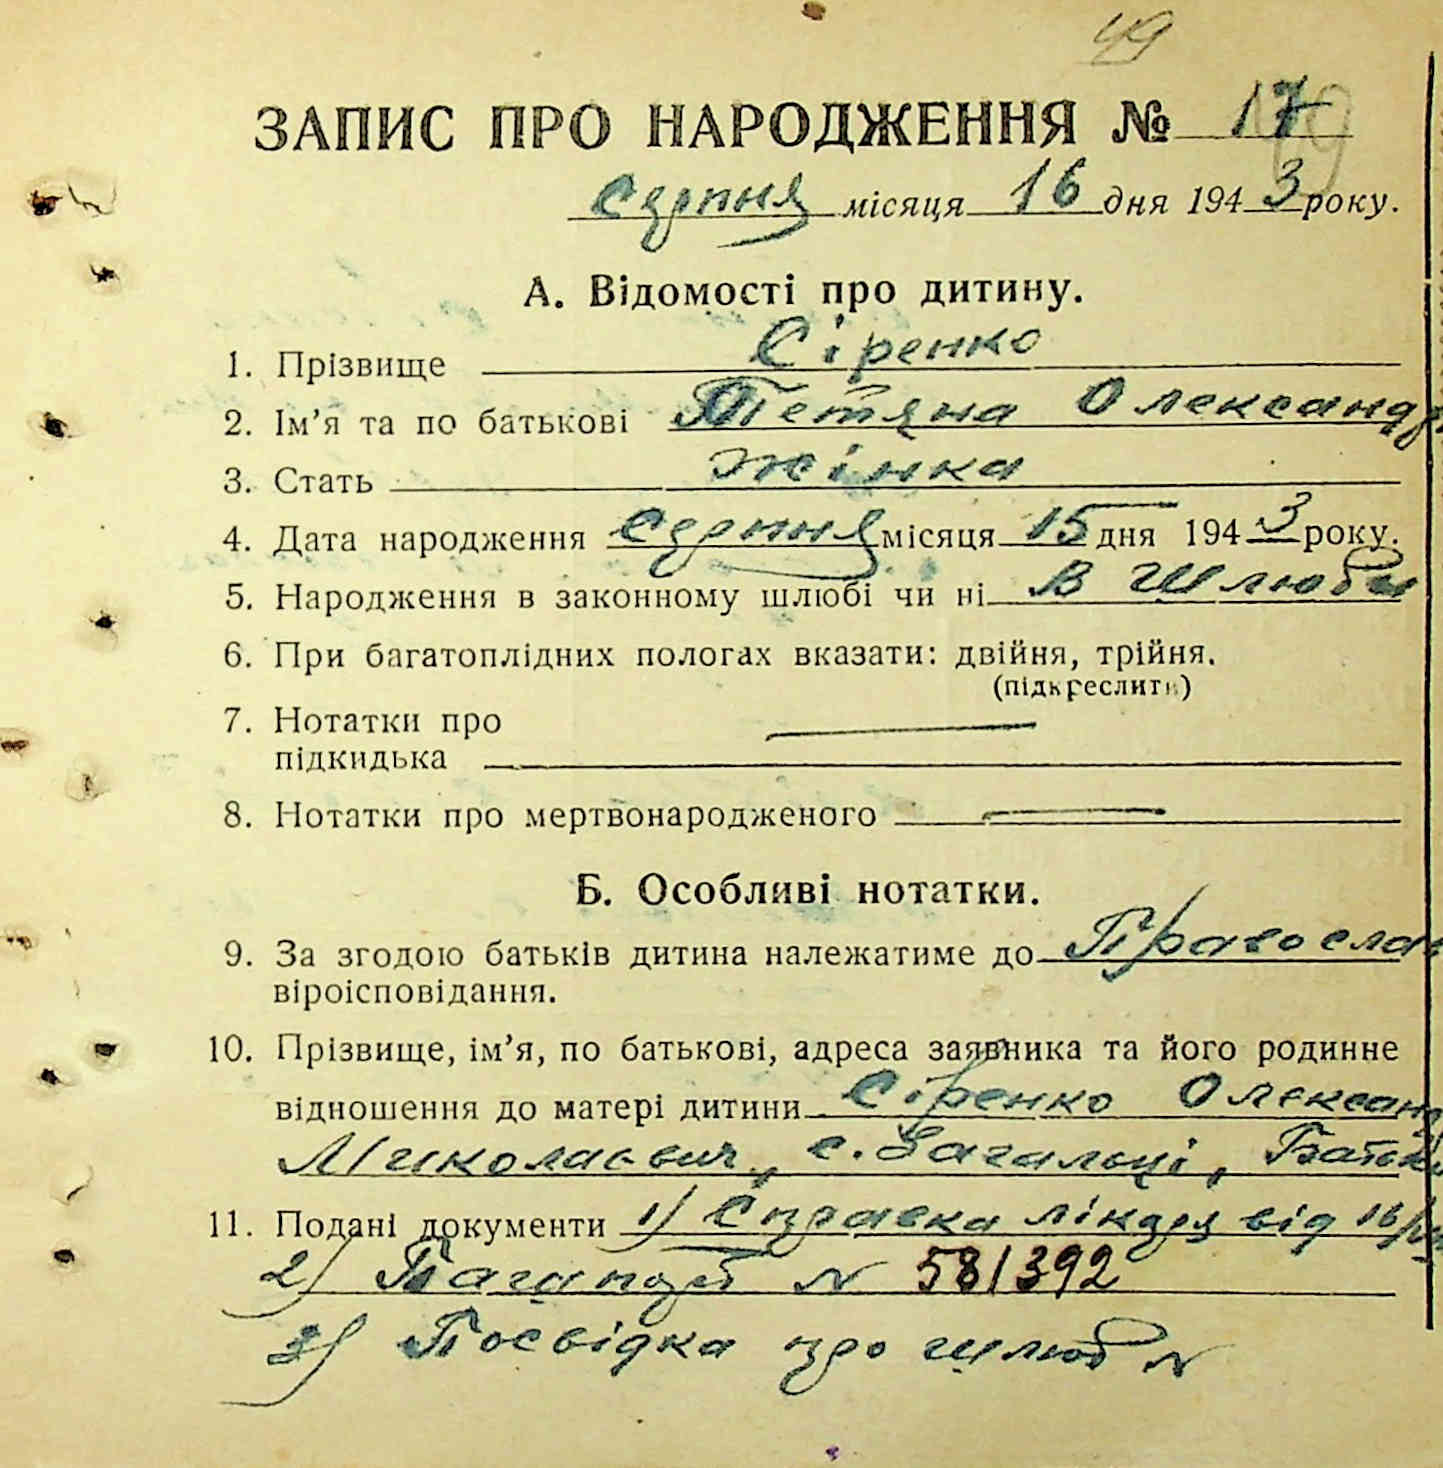 49
ЗАПИС ПРО НАРОДЖЕННЯ № 17
Серпня місяця 16 дня 1943 року.
А. Відомості про дитину.
1. Прізвище Сіренко
2. Ім'я та по батькові Тетяна Олександр
3. Стать жінка
4. Дата народження Серпня місяця 15 дня 1943 року.
5. Народження в законному шлюбі чи ні В шлюбі
6. При багатоплідних пологах вказати: двійня, трійня.
(підкреслити)
7. Нотатки про
підкидька
8. Нотатки про мертвонародженого
Б. Особливі нотатки.
9. За згодою батьків дитина належатиме до Православ
віроісповідання.
10. Прізвище, ім'я, по батькові, адреса заявника та його родинне
відношення до матері дитини Сіренко Олександ
Миколаевич, с. Загальці, Батько
11. Подані документи 1) Справка лікаря від 16/VIII
2) № 581392
3) Посвідка про шлюб №